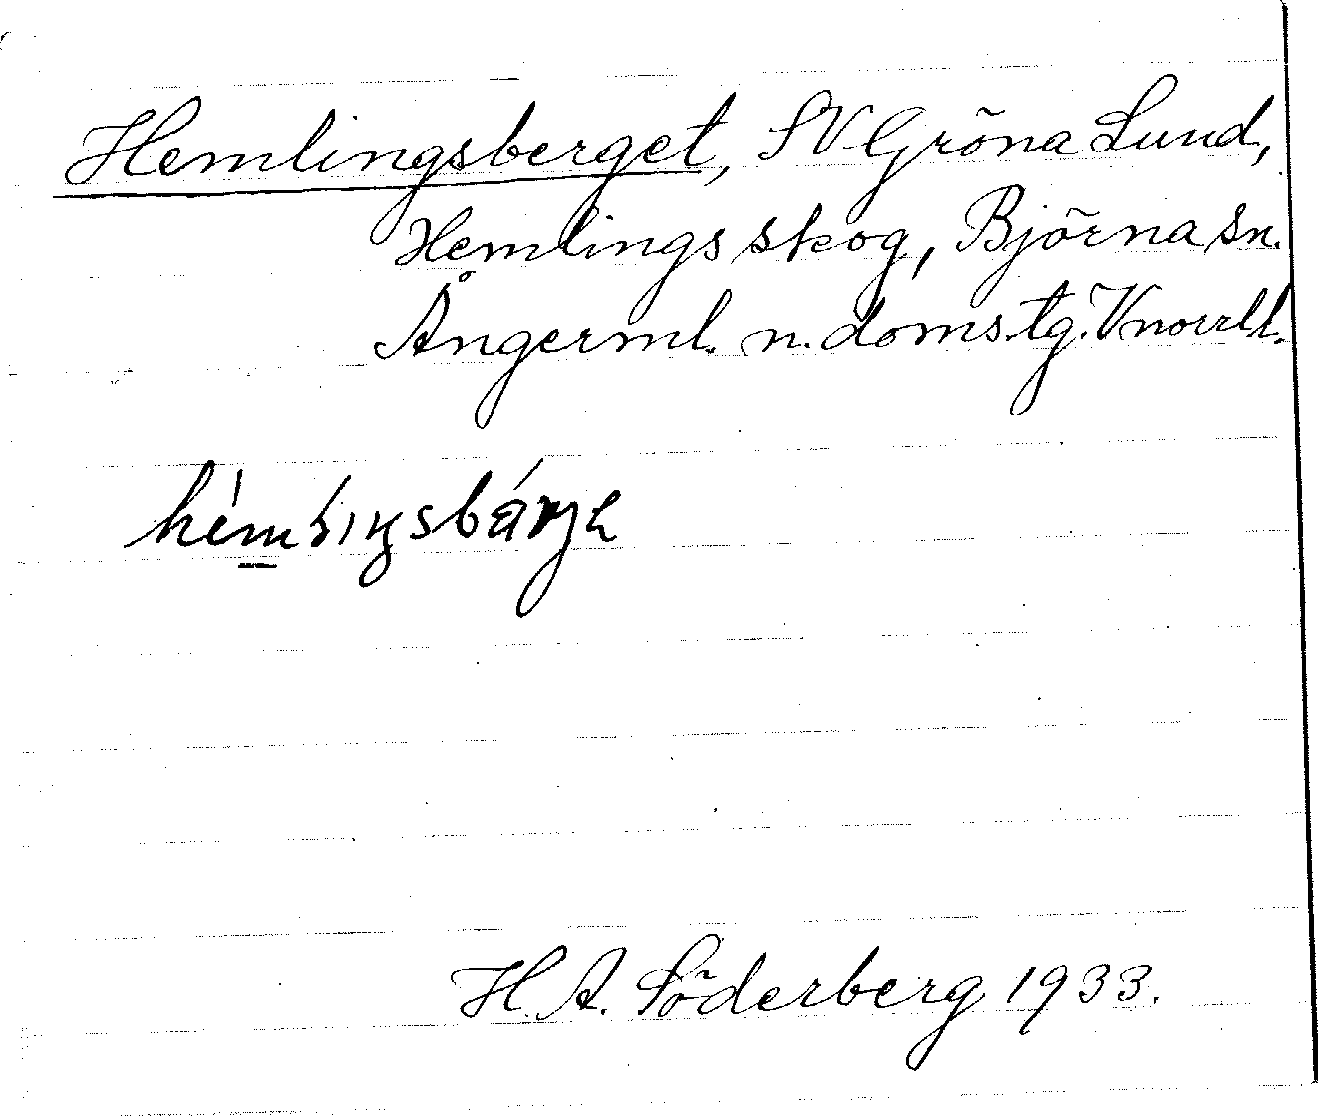 Hemlingsberget, SV Gröna Lund,
Hemlings skog, Björna sn.
Ångerml. n. doms.tg. Vnorrl l.
H. A. Söderberg 1933.